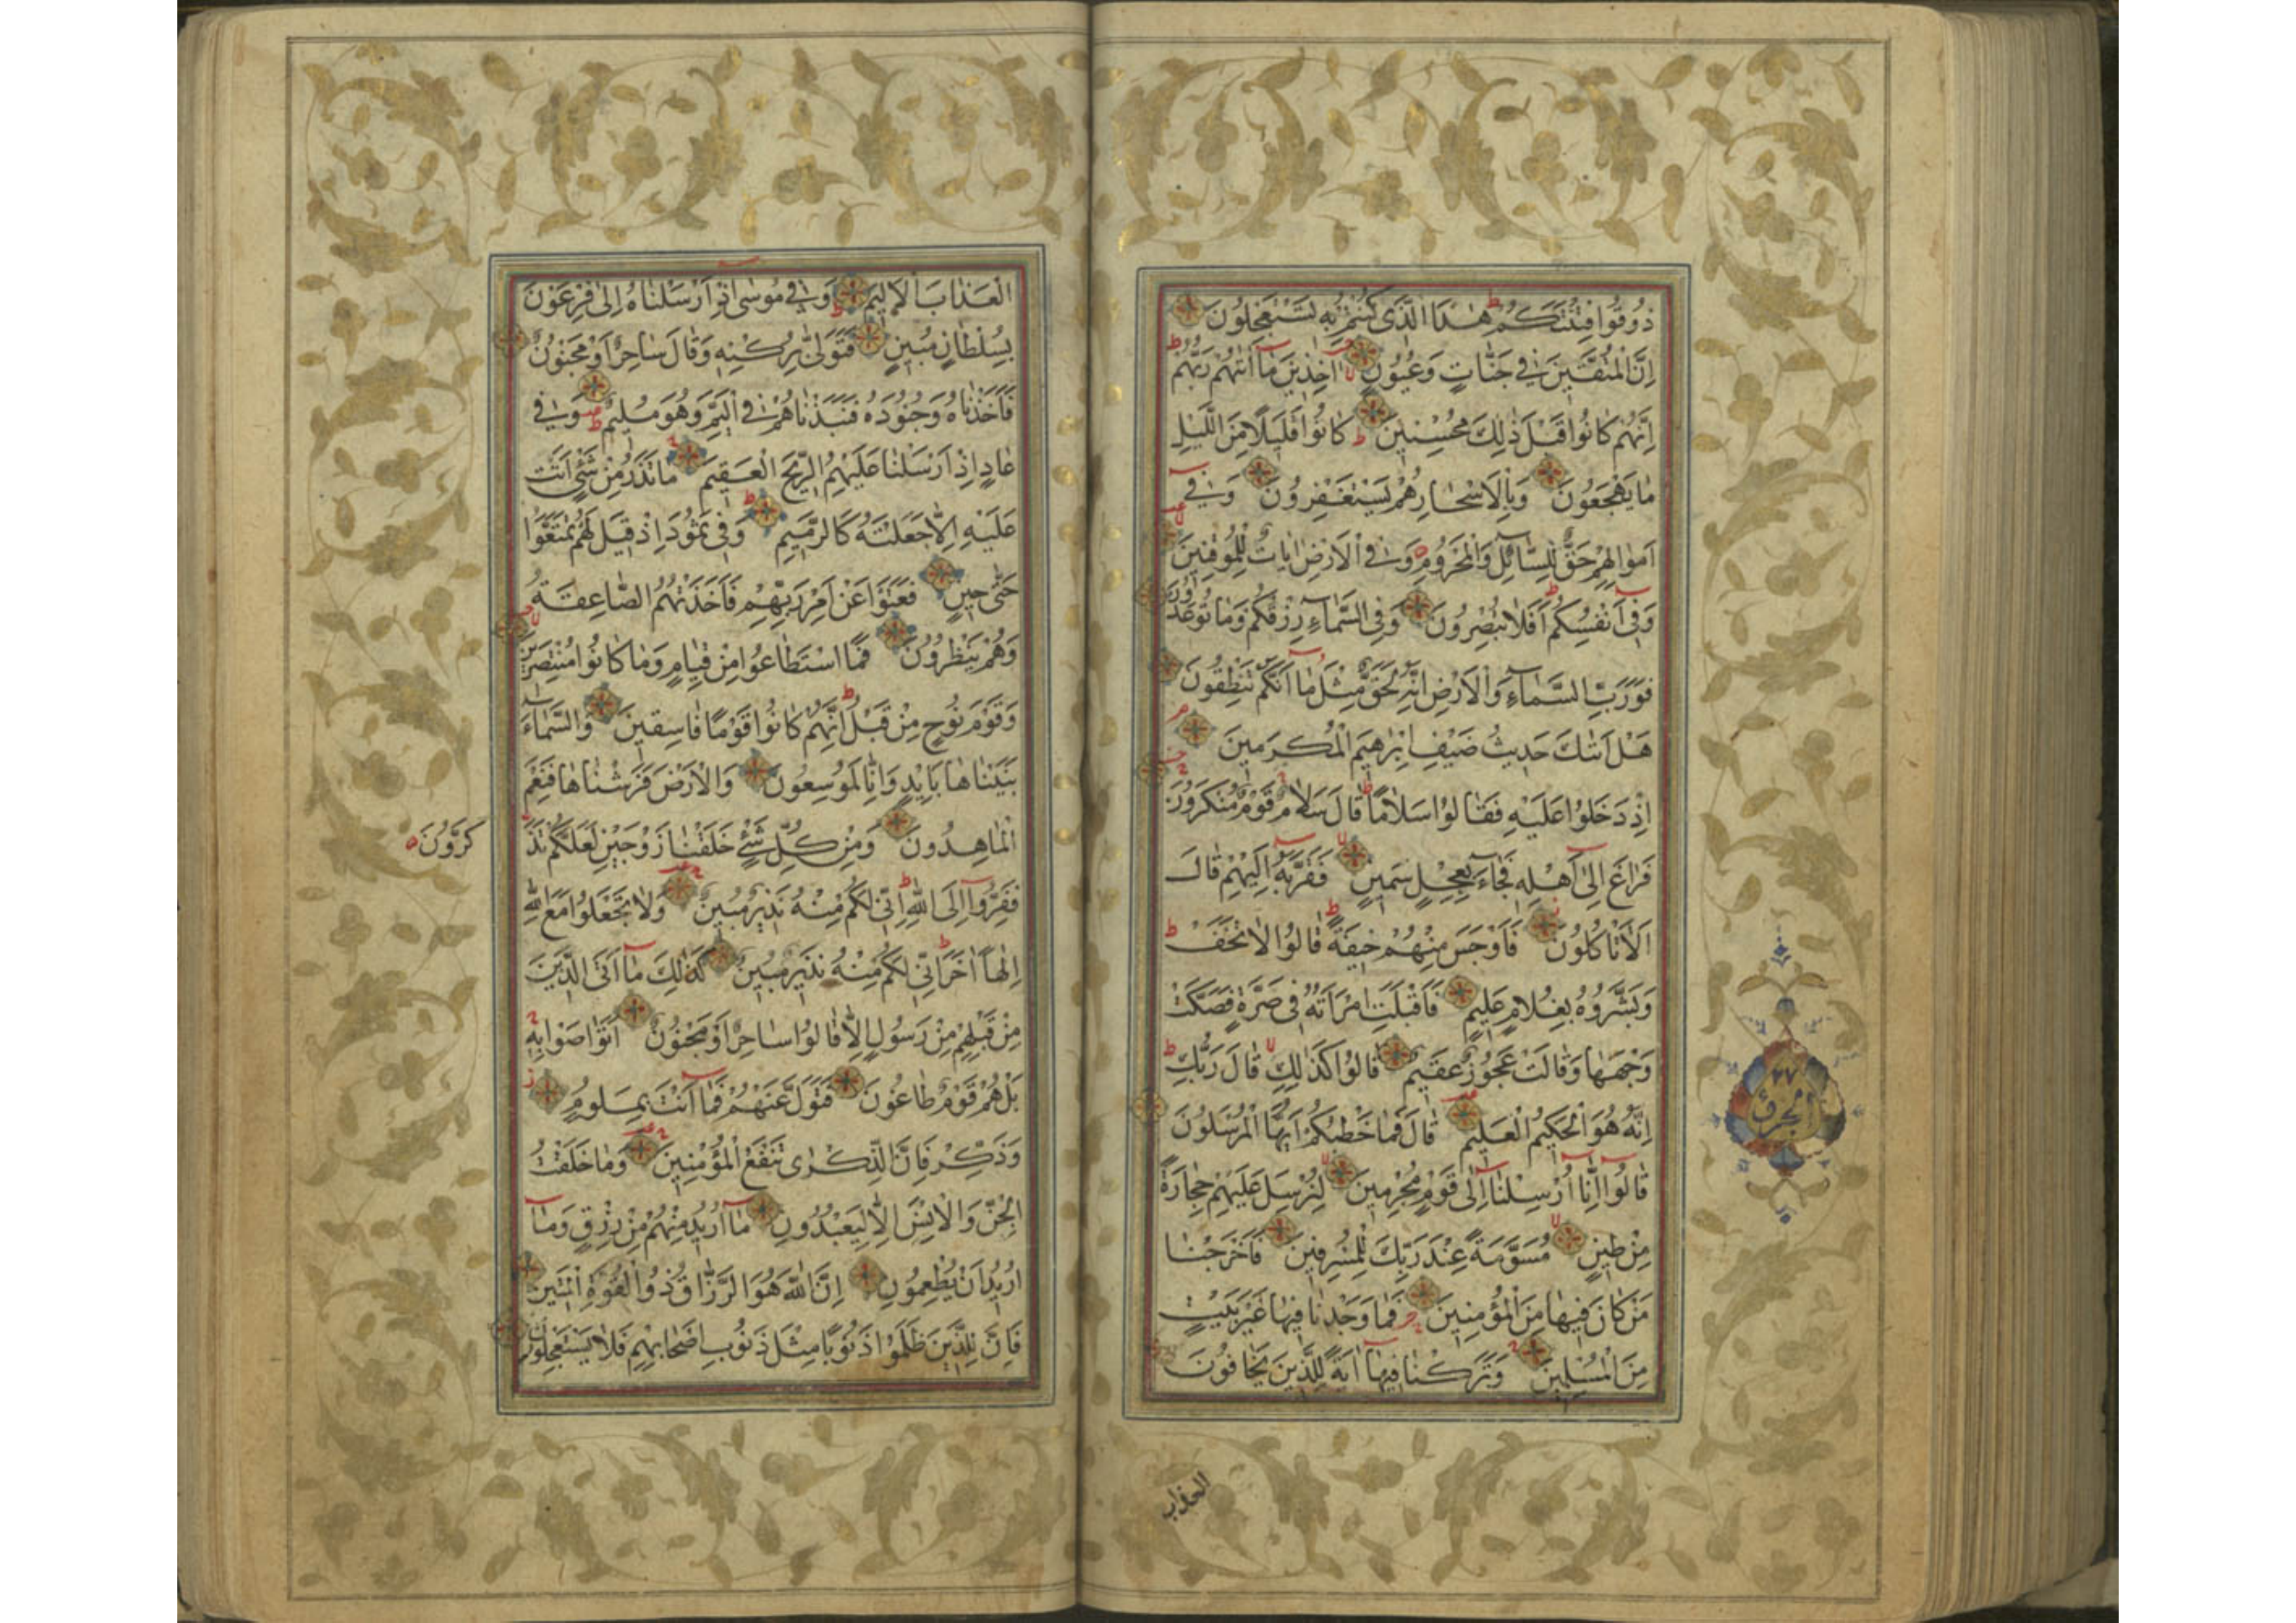 ذُوقُوا فِتْنَتَكُمْ هٰذَا الَّذى كُنْتُمْ بِهِ تَسْتَعْجِلُونَ
اِنَّ الْمُتَّقينَ فى جَنَّاتٍ وَعُيُونٍ اٰخِذينَ مَا اٰتٰيهُمْ رَبُّهُمْ
اِنَّهُمْ كَانُوا قَبْلَ ذٰلِكَ مُحْسِنينَ كَانُوا قَليلًا مِنَ الَّيْلِ
مَا يَهْجَعُونَ وَبِالْاَسْحَارِ هُمْ يَسْتَغْفِرُونَ وَفى
اَمْوَالِهِمْ حَقٌّ لِلسَّائِلِ وَالْمَحْرُومِ وَفِى الْاَرْضِ اٰيَاتٌ لِلْمُوقِنينَ
وَفى اَنْفُسِكُمْ اَفَلَا تُبْصِرُونَ وَفِى السَّمَاءِ رِزْقُكُمْ وَمَا تُوعَدُونَ
فَوَرَبِّ السَّمَاءِ وَالْاَرْضِ اِنَّهُ لَحَقٌّ مِثْلَ مَا اَنَّكُمْ تَنْطِقُونَ
هَلْ اَتٰيكَ حَديثُ ضَيْفِ اِبْرٰهيمَ الْمُكْرَمينَ
اِذْ دَخَلُوا عَلَيْهِ فَقَالُوا سَلَامًا قَالَ سَلَامٌ قَوْمٌ مُنْكَرُونَ
فَرَاغَ اِلٰى اَهْلِهِ فَجَاءَ بِعِجْلٍ سَمينٍ فَقَرَّبَهُ اِلَيْهِمْ قَالَ
اَلَا تَاْكُلُونَ فَاَوْجَسَ مِنْهُمْ خيفَةً قَالُوا لَا تَخَفْ
وَبَشَّرُوهُ بِغُلَامٍ عَليمٍ فَاَقْبَلَتِ امْرَاَتُهُ فى صَرَّةٍ فَصَكَّتْ
وَجْهَهَا وَقَالَتْ عَجُوزٌ عَقيمٌ قَالُوا كَذٰلِكِ قَالَ رَبُّكِ
اِنَّهُ هُوَ الْحَكيمُ الْعَليمُ قَالَ فَمَا خَطْبُكُمْ اَيُّهَا الْمُرْسَلُونَ
قَالُوا اِنَّا اُرْسِلْنَا اِلٰى قَوْمٍ مُجْرِمينَ لِنُرْسِلَ عَلَيْهِمْ حِجَارَةً
مِنْ طينٍ مُسَوَّمَةً عِنْدَ رَبِّكَ لِلْمُسْرِفينَ فَاَخْرَجْنَا
مَنْ كَانَ فيهَا مِنَ الْمُؤْمِنينَ فَمَا وَجَدْنَا فيهَا غَيْرَ بَيْتٍ
مِنَ الْمُسْلِمينَ وَتَرَكْنَا فيهَا اٰيَةً لِلَّذينَ يَخَافُونَ
العذاب
٢٧
الْعَذَابَ الْاَليمَ وَفى مُوسٰى اِذْ اَرْسَلْنَاهُ اِلٰى فِرْعَوْنَ
بِسُلْطَانٍ مُبينٍ فَتَوَلّٰى بِرُكْنِهِ وَقَالَ سَاحِرٌ اَوْ مَجْنُونٌ
فَاَخَذْنَاهُ وَجُنُودَهُ فَنَبَذْنَاهُمْ فِى الْيَمِّ وَهُوَ مُليمٌ وَفى
عَادٍ اِذْ اَرْسَلْنَا عَلَيْهِمُ الرّيحَ الْعَقيمَ مَا تَذَرُ مِنْ شَىْءٍ اَتَتْ
عَلَيْهِ اِلَّا جَعَلَتْهُ كَالرَّميمِ وَفى ثَمُودَ اِذْ قيلَ لَهُمْ تَمَتَّعُوا
حَتّٰى حينٍ فَعَتَوْا عَنْ اَمْرِ رَبِّهِمْ فَاَخَذَتْهُمُ الصَّاعِقَةُ
وَهُمْ يَنْظُرُونَ فَمَا اسْتَطَاعُوا مِنْ قِيَامٍ وَمَا كَانُوا مُنْتَصِرينَ
وَقَوْمَ نُوحٍ مِنْ قَبْلُ اِنَّهُمْ كَانُوا قَوْمًا فَاسِقينَ وَالسَّمَاءَ
بَنَيْنَاهَا بِاَيْيدٍ وَاِنَّا لَمُوسِعُونَ وَالْاَرْضَ فَرَشْنَاهَا فَنِعْمَ
الْمَاهِدُونَ وَمِنْ كُلِّ شَىْءٍ خَلَقْنَا زَوْجَيْنِ لَعَلَّكُمْ تَذَ
كَّرُونَ
فَفِرُّوا اِلَى اللّٰهِ اِنّى لَكُمْ مِنْهُ نَذيرٌ مُبينٌ وَلَا تَجْعَلُوا مَعَ اللّٰهِ
اِلٰهًا اٰخَرَ اِنّى لَكُمْ مِنْهُ نَذيرٌ مُبينٌ كَذٰلِكَ مَا اَتَى الَّذينَ
مِنْ قَبْلِهِمْ مِنْ رَسُولٍ اِلَّا قَالُوا سَاحِرٌ اَوْ مَجْنُونٌ اَتَوَاصَوْا بِهِ
بَلْ هُمْ قَوْمٌ طَاغُونَ فَتَوَلَّ عَنْهُمْ فَمَا اَنْتَ بِمَلُومٍ
وَذَكِّرْ فَاِنَّ الذِّكْرٰى تَنْفَعُ الْمُؤْمِنينَ وَمَا خَلَقْتُ
الْجِنَّ وَالْاِنْسَ اِلَّا لِيَعْبُدُونِ مَا اُريدُ مِنْهُمْ مِنْ رِزْقٍ وَمَا
اُريدُ اَنْ يُطْعِمُونِ اِنَّ اللّٰهَ هُوَ الرَّزَّاقُ ذُو الْقُوَّةِ الْمَتينُ
فَاِنَّ لِلَّذينَ ظَلَمُوا ذَنُوبًا مِثْلَ ذَنُوبِ اَصْحَابِهِمْ فَلَا يَسْتَعْجِلُونِ